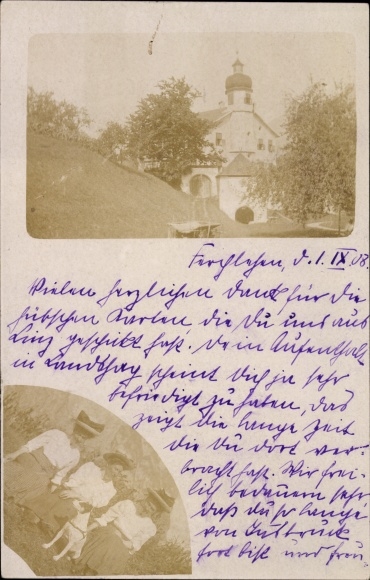 Ferchlehen, d. 1. IX. 08.
Vielen herzlichen Dank für die
hübschen Karten, die Du uns aus
Linz geschickt hast. Dein Aufenthalt
in scheint Dich ja sehr
befriedigt zu haben, das
zeigt die lange Zeit
die Du dort ver-
bracht hast. Wir frei-
lich bedauern sehr
daß Du so lange
von Innsbruck
fort bist und freu-